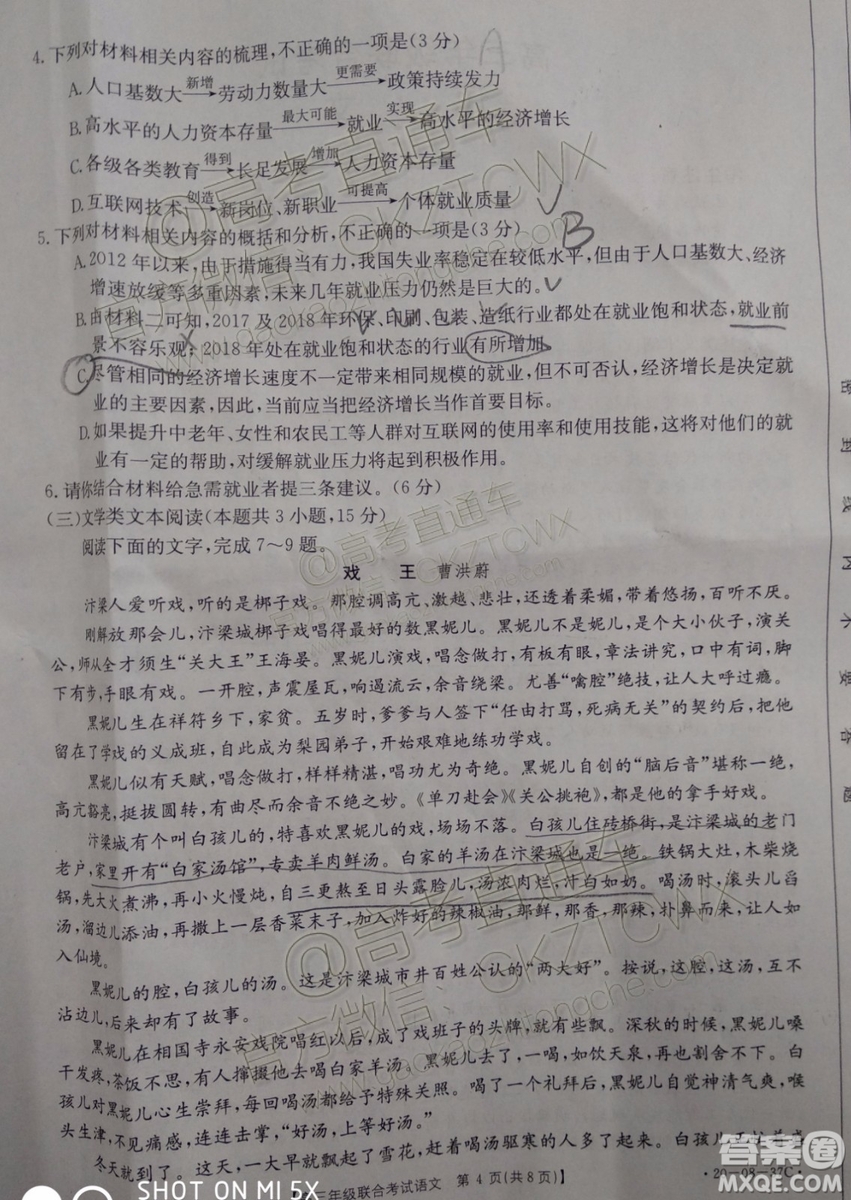 4.下列对材料相关内容的梳理,不正确的一项是(3分)
A.人口基数大 新增→ 劳动力数量大 更需要→ 政策持续发力
B.高水平的人力资本存量 最大可能→ 就业 实现→ 高水平的经济增长
C.各级各类教育 得到→ 长足发展 增加→ 人力资本存量
D.互联网技术 创造→ 新岗位、新职业 可提高→ 个体就业质量
5.下列对材料相关内容的概括和分析,不正确的一项是(3分)
B
A.2012年以来,由于措施得当有力,我国失业率稳定在较低水平,但由于人口基数大、经济
增速放缓等多重因素,未来几年就业压力仍然是巨大的。
B.由材料二可知,2017及2018年环保、印刷、包装、造纸行业都处在就业饱和状态,就业前
景不容乐观;2018年处在就业饱和状态的行业有所增加。
C.尽管相同的经济增长速度不一定带来相同规模的就业,但不可否认,经济增长是决定就
业的主要因素,因此,当前应当把经济增长当作首要目标。
D.如果提升中老年、女性和农民工等人群对互联网的使用率和使用技能,这将对他们的就
业有一定的帮助,对缓解就业压力将起到积极作用。
6.请你结合材料给急需就业者提三条建议。(6分)
(三)文学类文本阅读(本题共3小题,15分)
阅读下面的文字,完成7～9题。
戏 王 曹洪蔚
汴梁人爱听戏,听的是梆子戏。那腔调高亢、激越、悲壮,还透着柔媚,带着悠扬,百听不厌。
刚解放那会儿,汴梁城梆子戏唱得最好的数黑妮儿。黑妮儿不是妮儿,是个大小伙子,演关
公,师从全才须生“关大王”王海晏。黑妮儿演戏,唱念做打,有板有眼,章法讲究,口中有词,脚
下有步,手眼有戏。一开腔,声震屋瓦,响遏流云,余音绕梁。尤善“噙腔”绝技,让人大呼过瘾。
黑妮儿生在祥符乡下,家贫。五岁时,爹爹与人签下“任由打骂,死病无关”的契约后,把他
留在了学戏的义成班,自此成为梨园弟子,开始艰难地练功学戏。
黑妮儿似有天赋,唱念做打,样样精湛,唱功尤为奇绝。黑妮儿自创的“脑后音”堪称一绝,
高亢豁亮,挺拔圆转,有曲尽而余音不绝之妙。《单刀赴会》《关公挑袍》,都是他的拿手好戏。
汴梁城有个叫白孩儿的,特喜欢黑妮儿的戏,场场不落。白孩儿住砖桥街,是汴梁城的老门
老户,家里开有“白家汤馆”,专卖羊肉鲜汤。白家的羊汤在汴梁城也是一绝。铁锅大灶,木柴烧
锅,先大火煮沸,再小火慢炖,自三更熬至日头露脸儿,汤浓肉烂,汁白如奶。喝汤时,滚头儿舀
汤,溜边儿添油,再撒上一层香菜末子,加入炸好的辣椒油,那鲜,那香,那辣,扑鼻而来,让人如
入仙境。
黑妮儿的腔,白孩儿的汤。这是汴梁城市井百姓公认的“两大好”。按说,这腔,这汤,互不
沾边儿,后来却有了故事。
黑妮儿在相国寺永安戏院唱红以后,成了戏班子的头牌,就有些飘。深秋的时候,黑妮儿嗓
干发疼,茶饭不思,有人撺掇他去喝白家羊汤。黑妮儿去了,一喝,如饮天泉,再也离不开了。白
孩儿对黑妮儿心生崇拜,每回喝汤都给予特殊关照。喝了一个礼拜后,黑妮儿自觉神清气爽,喉
头生津,不见痛感,连连击掌,“好汤,上等好汤。”
冬天就到了。这天,一大早就飘起了雪花,赶着喝汤驱寒的人多了起来。白孩儿
三年级联合考试语文 第4页(共8页)】
·20-08-37C·
密
封
线
内
不
要
答
题
@高考直通车
官方微信:GKZTCWX
www.gaokaozhitongche.com
@高考直通车
GKZTCWX
@高考直通车
官方微信:GKZTCWX
www.gaokaozhitongche.com
SHOT ON MI 5X
答案圈
MXQE.COM